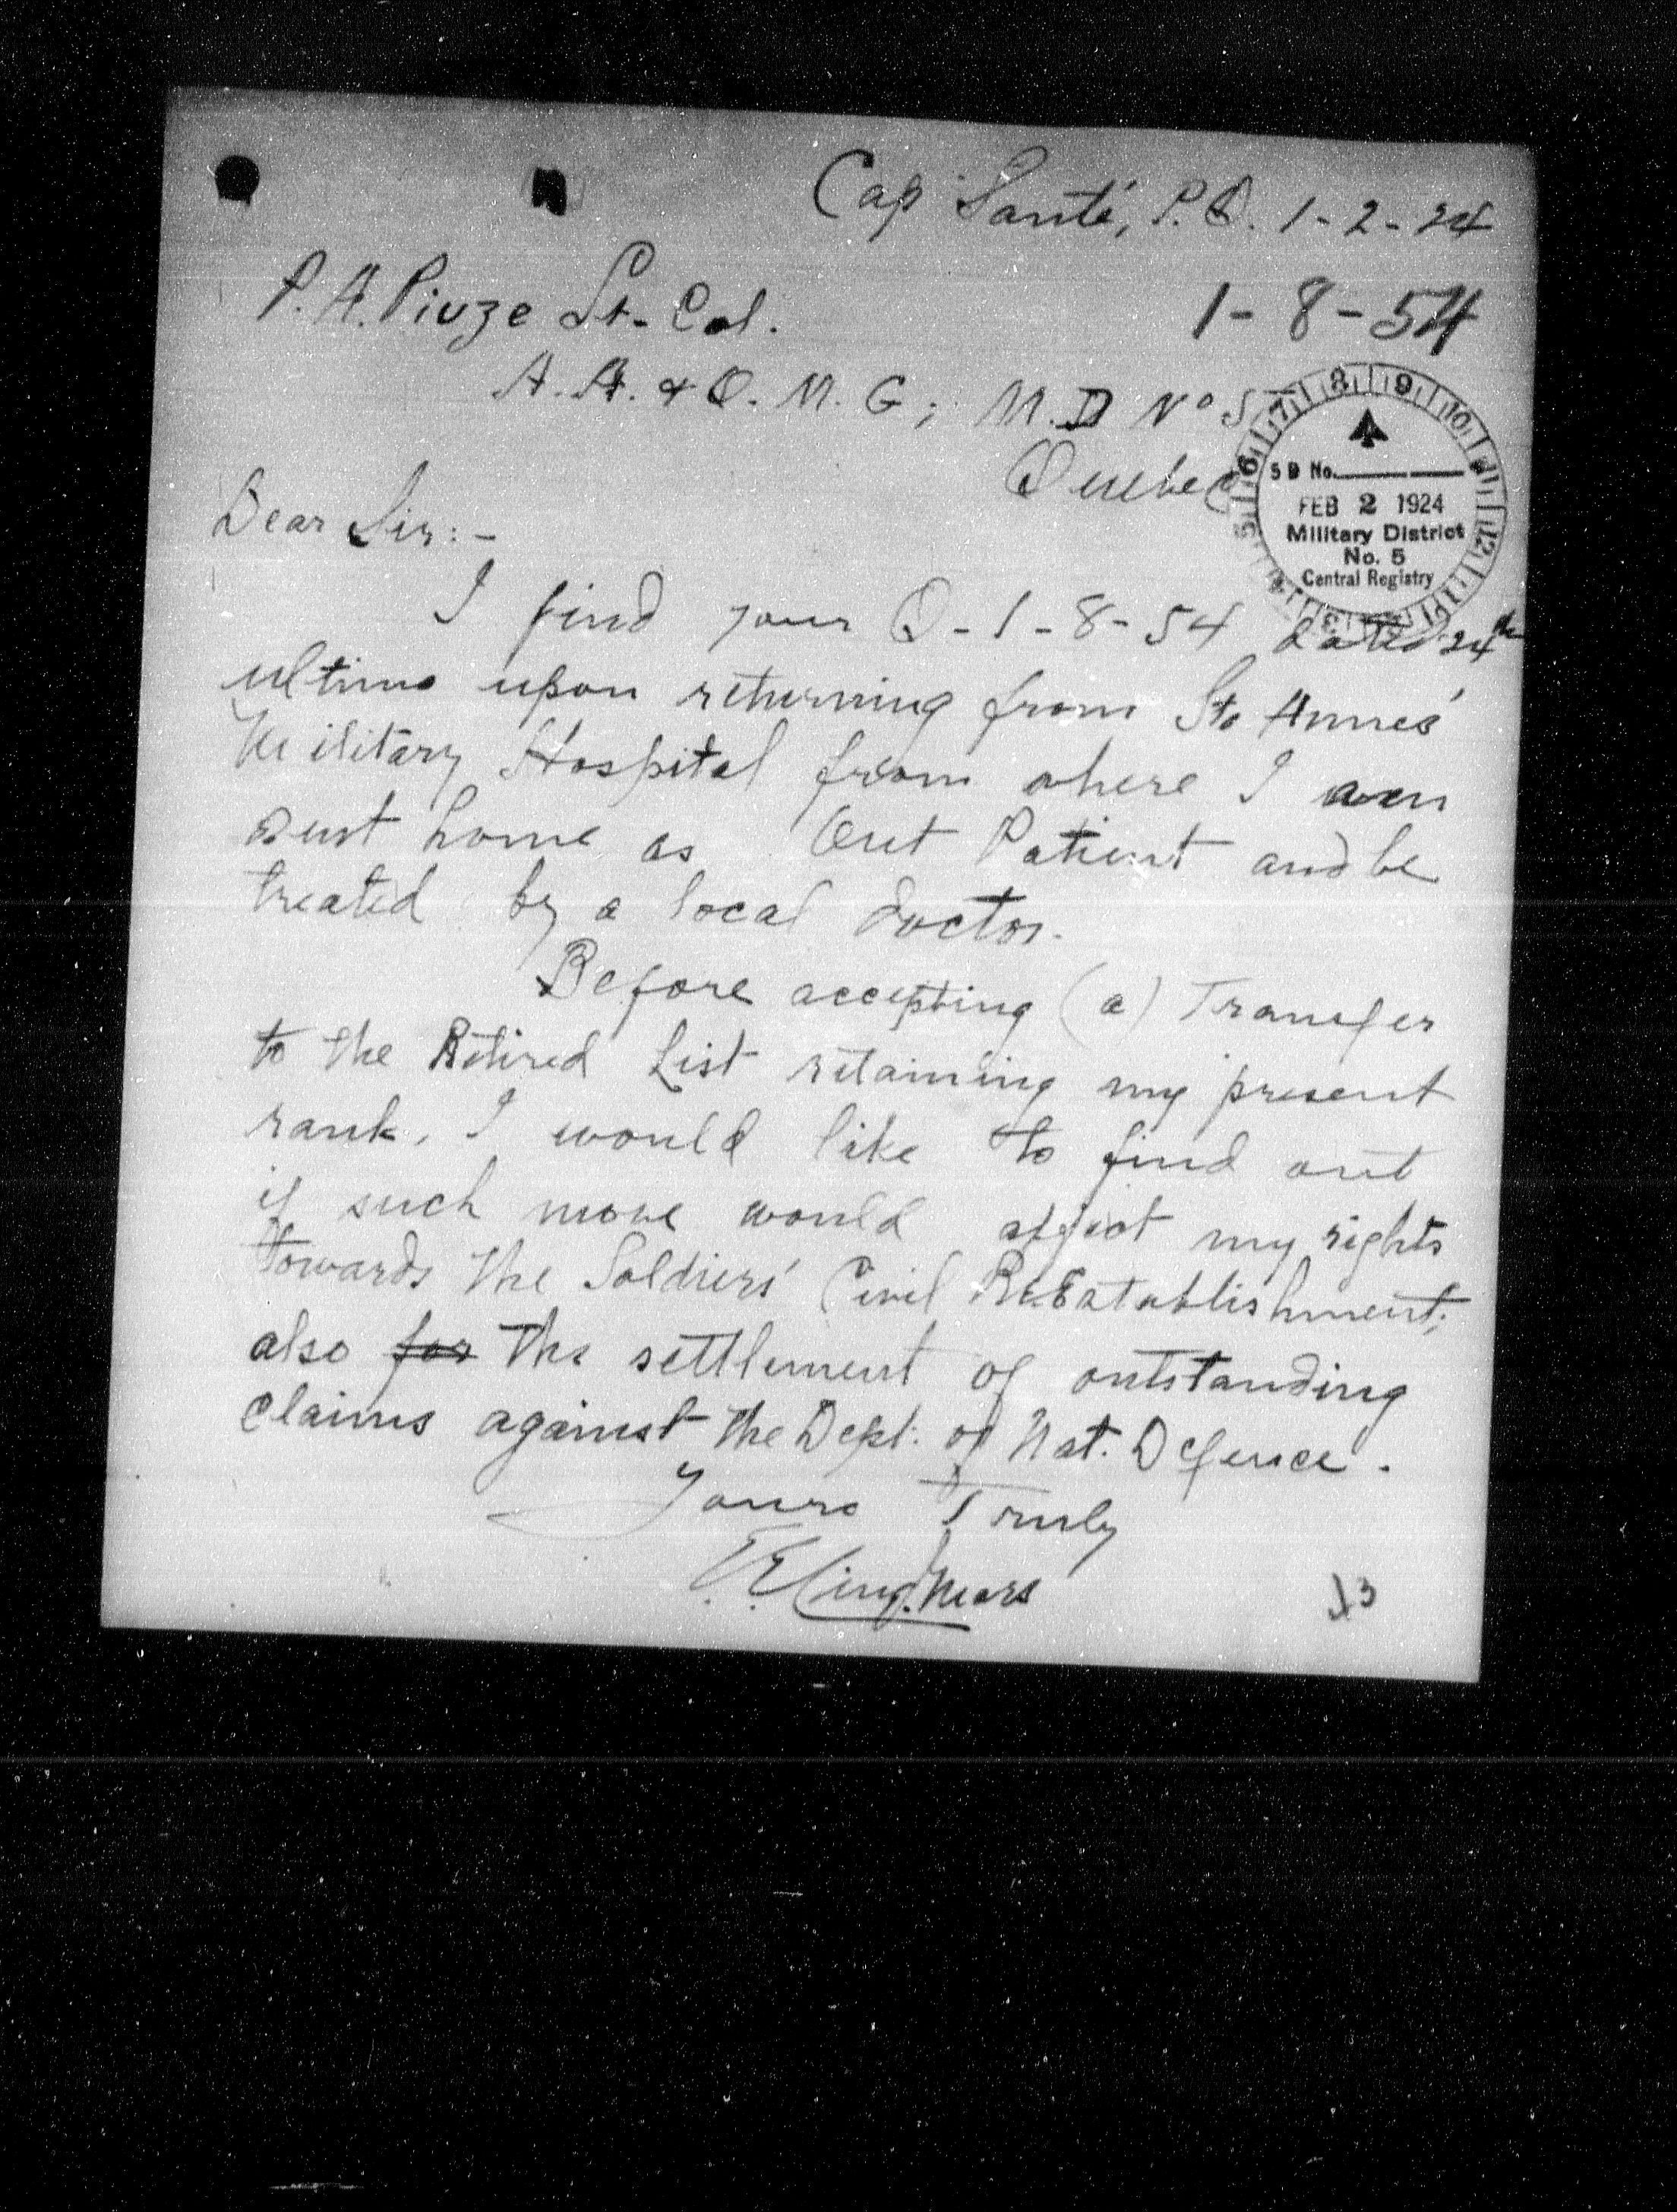 Cap Santé, P.Q. 1-2-24
P.A. Piuze Lt-Col.
1-8-54
A.A. & Q.M.G; M.D No 5
Quebec
5 D No.
FEB 2 1924
Military District
No. 5
Central Registry
Dear Sir:-
I find your Q-1-8-54 dated 24th
ultimo upon returning from Ste Annes'
Military Hospital from where I am
sent home as Out Patient and be
treated by a local doctor.
Before accepting (a) Transfer
to the Retired List retaining my present
rank, I would like to find out
if such move would affect my rights
towards the Soldiers' Civil ReEstablishment;
also for the settlement of outstanding
claims against the Dept. of Nat. Defence.
Yours Truly